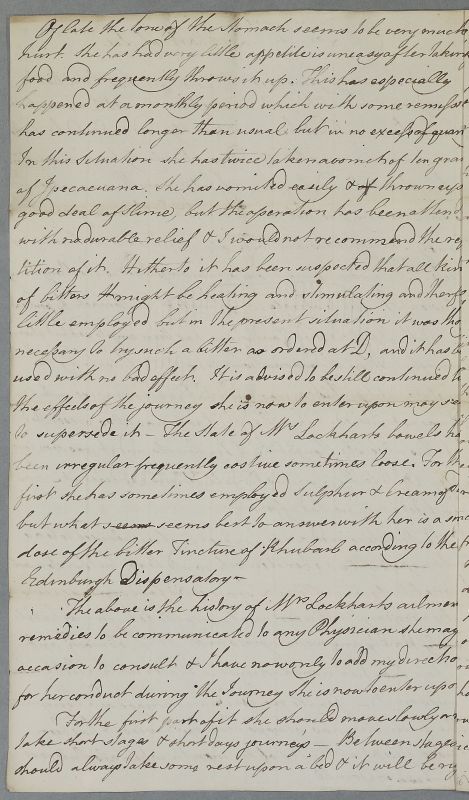 Of late the tone of the Stomach seems to be very much
hurt. She has had very little appetite is uneasy after taken
food and frequently throws it up. This has especially
happened at a monthly period which with some remiss
has continued longer than usual but in no excess of quan
In this Situation she has twice taken a vomit of ten grai
of Ipecacuana. She has vomited easily & of thrown up a
good deal of Slime, but the operation has been attend
with no durable relief & I would not recommend the re
tition of it. Hitherto it has been suspected that all kin
of bitters might be heating and stimulating and theref
little employed but in the present situation it was tho
necessary to try such a bitter as ordered at D, and it has b
used with no bad effect. It is advised to be still continued
the effects of the journey she is now to enter upon may se
to supersede it – The State of Mrs Lockharts bowels ha
been irregular frequently costive sometimes loose. For the
first she has sometimes employed Sulphur & Cream of
but what seems seems best to answer with her is a sma
dose of the bitter Tincture of Rhubarb according to the
Edinburgh Dispensatory –
The above is the history of Mrs Lockharts ailmen
remedies to be communicated to any Physician she may
occasion to consult & I have now only to add my directio
for her conduct during the Journey she is now to enter upo
For the first part of it she should move slowly or
take short stages & short days journeys – Between stages
should always take some rest upon a bed & it will be